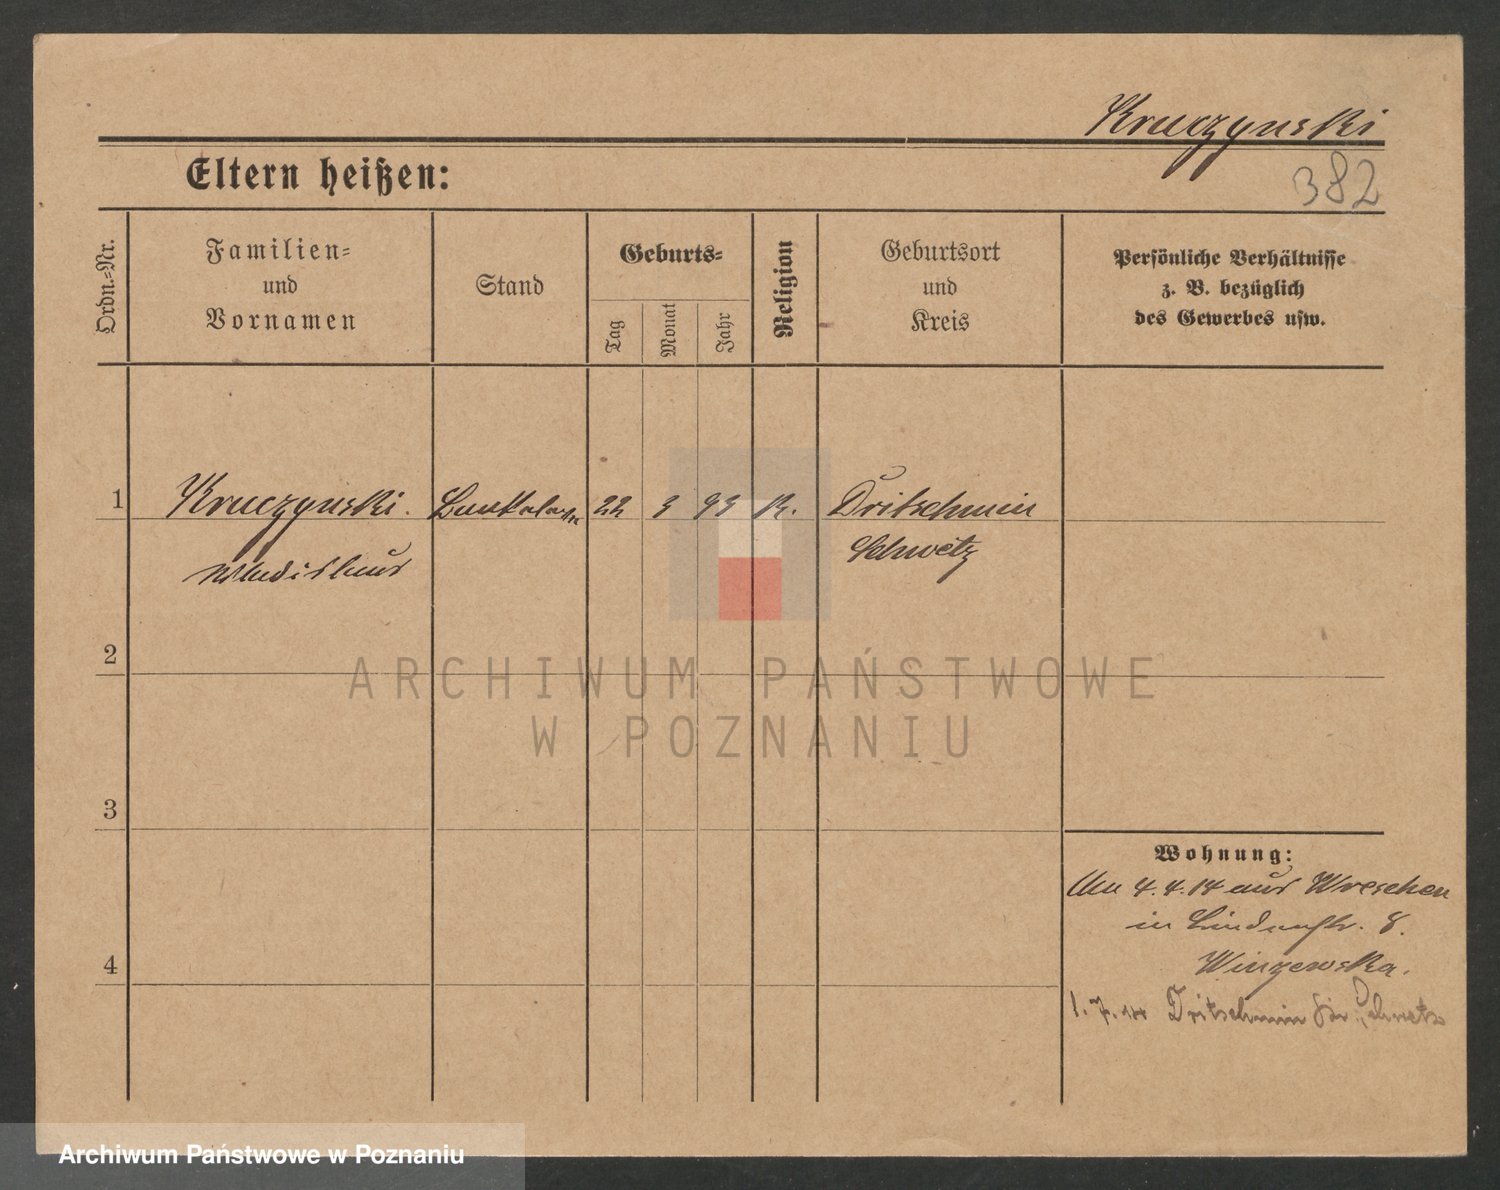 Kruczynski
382
Eltern heißen:
Ordn.-Nr.
Familien-
und
Vornamen
Stand
Geburts-
Tag
Monat
Jahr
Religion
Geburtsort
und
Kreis
Persönliche Verhältnisse
z. B. bezüglich
des Gewerbes usw.
1 Kruczynski. 22 3 93 K. Dritschmin
Schwetz
2
ARCHIWUM PAŃSTWOWE
W POZNANIU
3
Wohnung:
4.4.14 aus Wreschen
in Lindenstr. 8.
4
1.7.14 Dritschmin Kr. Schwetz
Archiwum Państwowe w Poznaniu